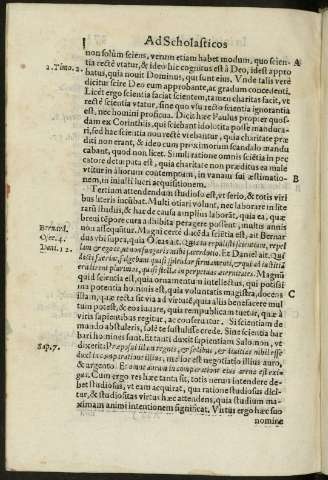 Ad Scholasticos
non solùm sciens, verum etiam habet modum, quo scien- A
2. Timo. 2. tia rectè vtatur, & ideo hic cognitus est à Deo, idest appro
batus, quia nouit Dominus, qui sunt eius. Vnde talis verè
dicitur scire Deo eum approbante, ac gradum concedenti.
Licèt ergo scientia faciat scientem, tamen charitas facit, vt
rectè scientia vtatur, sine quo vsu recto scientia ignorantia
est, nec homini proficua. Dicit hæc Paulus propter quos-
dam ex Corinthiis, qui sciebant idolotita posse manduca-
ri, sed hac scientia non rectè viebantur, quia charitate præ
diti non erant, & ideo cum proximorum scandalo mandu
cabant, quod non licet. Simili ratione omnis sciẽtia in pec
catore deturpata est, quia charitate non præditus ea male
vtitur in aliorum contemptum, in vanam sui æstimatio- B
nem, in iniusti lucri acquisitionem.
Tertium attendendum studioso est, vt serio, & totis viri
bus literis incũbat. Multi otiari volunt, nec laborare in lite
rarũ studus, & hac de causa amplius laborãt, quia ea, quæ
breui tẽpore cura adhibita peragere possent, multis annis
non assequũtur. Magni certè ducẽda sciẽtia est, ait Bernar
Bernard. dus vbi supra, quia
Oser. 4.
Dani. 12. lam ego te, ne sacerdotio. Et Daniel ait: Qui
docti fuerint, fulgebunt quasi splendor firmamenti, & qui ad iustitiã
erudierint plurimos, quasi stellæ in perpetuas æternitates. Magnũ
quid scientia est, quia ornamentum intellectui, qui potissi
ma potentia hominis est, quia voluntatis magistra, docens C
illam, quæ recta sit via ad virtutẽ, quia aliis benefacere mul
tum potest, & eos iuuare, quia rempublicam tuetur, quæ à
viris sapientibus regitur, & conseruatur. Si scientiam de
mundo abstuleris, solẽ te sustulisse crede. Sine scientia bar
bari homines sunt. Et tanti duxit sapientiam Salomon, vt
Sap. 7. dixerit: Præposui illam regnis, & sedibus, & diuitias nihil esse
duxi in comparatione illius, melior est negotiatio illius auro,
& argento. Et omne aurum in comparatione eius arena est exi
gua. Cum ergo res hæc tanta sit, totis neruis intendere de-
bet studiosus, vt eam acquirat, qua ratione studiosus dici-
tur, & studiositas virtus hæc attendens, quia studium ma-
ximam animi intentionem significat. Virtus ergo hæc suo
nomine